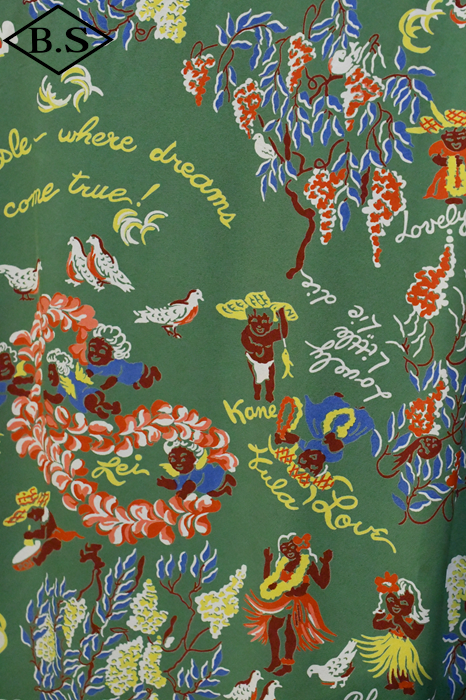 B.S
where dreams
come true!
Lovely
Lovely
Little
Lie
die
Kane
Lei
Hula Love